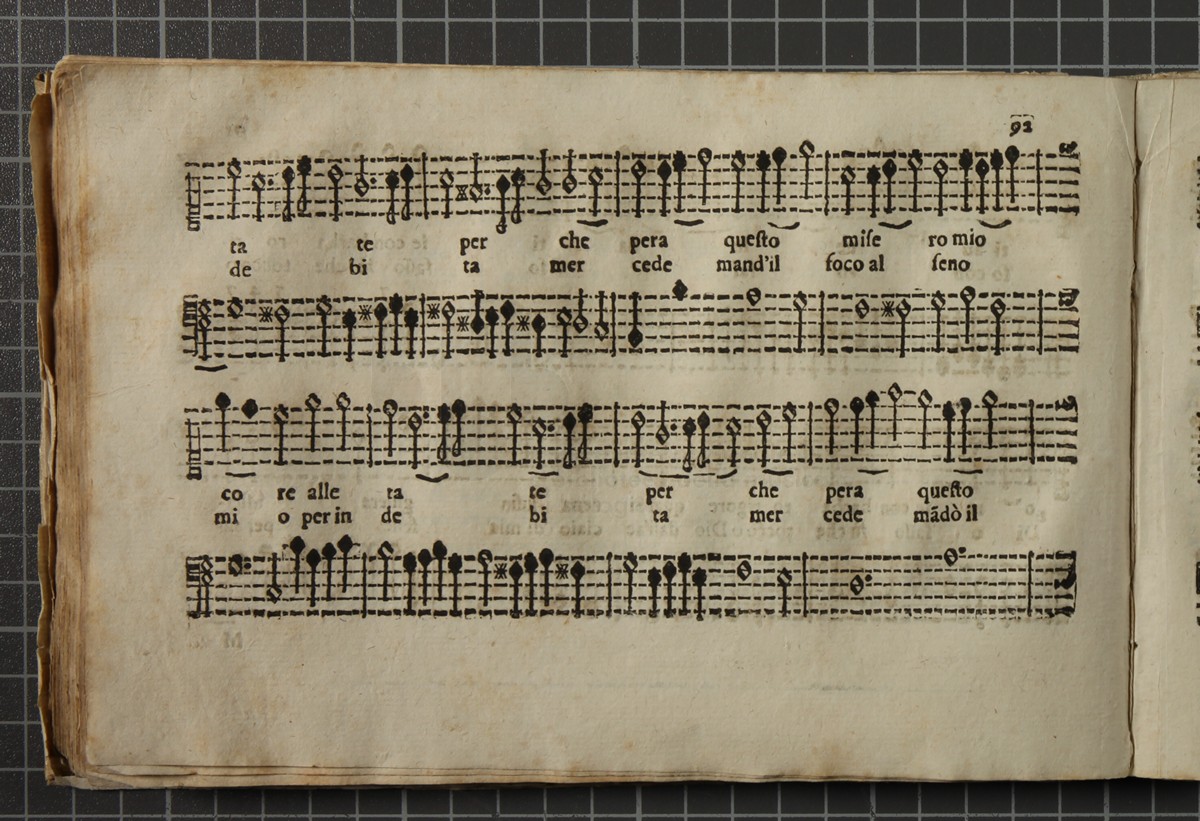 92
ta te per che pera queſto miſe ro mio
de bi ta mer cede mand'il foco al ſeno
co re alle ta te per che pera queſto
mi o per in de bi ta mer cede mãdò il